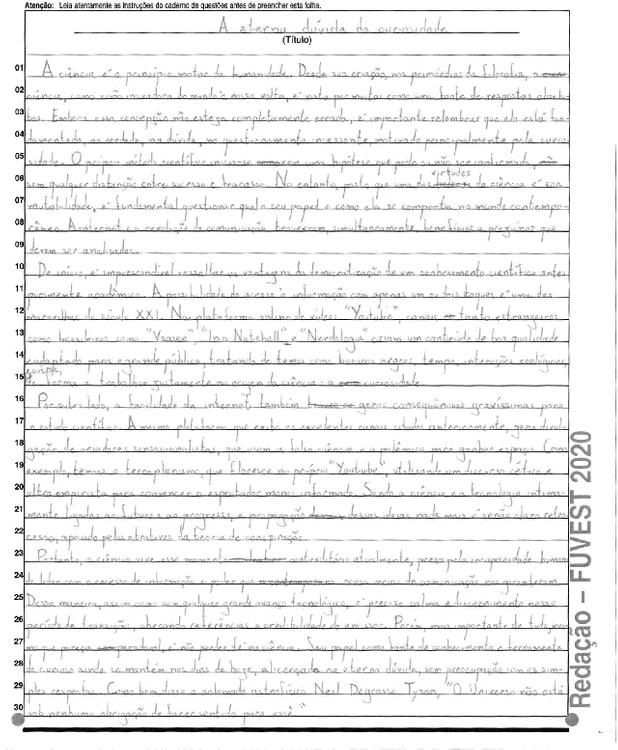 Atenção: Leia atentamente as instruções do caderno de questões antes de preencher esta folha.
A eterna dúvida da curiosidade
(Título)
01 A ciência é o princípio motor da humanidade. Desde sua criação, nos primórdios da filosofia, a
02 ciência, como visão inovadora do mundo à nossa volta, é vista por muitos como uma fonte de respostas absolu-
03 tas. Embora essa concepção não esteja completamente errada, é importante relembrar que ela está fun-
04 damentada, na verdade, na dúvida, no questionamento incessante, motivado principalmente pela curio-
05 sidade. O próprio método científico inicia-se com uma hipótese que pode ou não ser confirmada,
06 sem qualquer distinção entre sucesso e fracasso. No entanto, posto que uma das virtudes da ciência é essa
07 mutabilidade, é fundamental questionar qual o seu papel e como ela se comporta no mundo contempo-
08 râneo. A internet e a revolução da comunicação trouxeram, simultaneamente, benefícios e prejuízos que
09 devem ser analisados.
10 De início, é imprescindível ressaltar as vantagens da democratização de um conhecimento científico antes
11 puramente acadêmico. A possibilidade do acesso à informação com apenas um ou dois toques é uma das
12 maravilhas do século XXI. Na plataforma online de vídeos "Youtube", canais tanto estrangeiros
13 como brasileiros como "Vsauce", "In a Nutshell" e "Nerdologia" criam um conteúdo de boa qualidade
14 e adaptado para o grande público, tratando de temas como buracos negros, tempo, interações ecológicas,
15 de forma a trabalhar justamente na origem da ciência: a curiosidade.
16 Por outro lado, a facilidade da internet também gerou consequências gravíssimas para
17 o estudo científico. A mesma plataforma que exibe os excelentes canais citados anteriormente, gera divul-
18 gação de criadores sensacionalistas, que usam a falsa ciência e a polêmica para ganhar espaço. Como
19 exemplo, temos o terraplanismo, que floresce no próprio "Youtube", utilizando um discurso cético e
20 ultra empirista para convencer o espectador menos informado. Sendo a ciência e a tecnologia intima-
21 mente ligadas ao futuro e ao progresso, a propagação dessas ideias nada mais é senão claro retro-
22 cesso, apoiado pelos atrativos da teoria de conspiração.
23 Portanto, a ciência vive esse momento contraditório atualmente, presa pela incapacidade humana
24 de lidar com o excesso de informação e poder que nossos meios de comunicação nos garantiram.
25 Dessa maneira, assim como com qualquer grande avanço tecnológico, é preciso calma e discernimento nesse
26 período de transição, checando referências e credibilidade em uso. Porém, mais importante de tudo,
27 é não perder fé na ciência. Seu papel como fonte de conhecimento e ferramenta
28 de curioso ainda se mantém nos dias de hoje, alicerçada na eterna dúvida, sem preocupação com as sim-
29 ples respostas. Como bem disse o aclamado astrofísico Neil Degrasse Tyson, "O Universo não está
30 sob nenhuma obrigação de fazer sentido para você"
Redação – FUVEST 2020